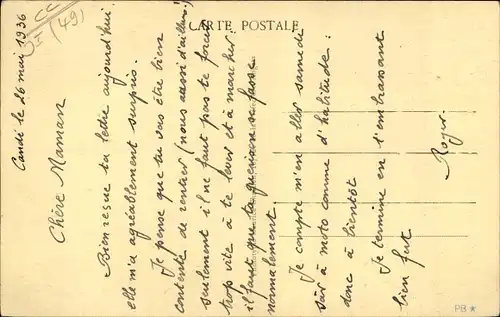 CARTE POSTALE
CC
I
(49)
Candé le 26 mai 1936
Chère Maman
Bien reçue ta lettre aujourd'hui.
elle m'a agréablement surpris.
Je pense que tu vas être bien
contente de rentrer (nous aussi d'ailleurs!)
seulement il ne faut pas te forcer
trop vite à te lever et à marcher.
il faut que ta guérison se fasse
normalement.
Je compte m'en aller samedi
soir à moto comme d'habitude:
donc à bientôt
Je termine en t'embrassant
bien fort
Roger.
PB